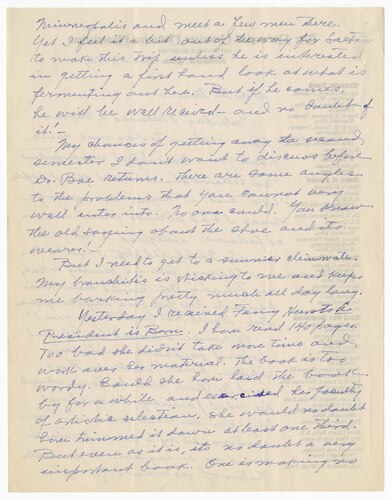 Minneapolis and meet a few men there.
Yet I feel it a bit out of the way for Saxton
to make this trip unless he is interested
in getting a first hand look at what is
fermenting out here. But if he comes
he will be well received – and no doubt of
it! –
My chances of getting away the second
semester I don't want to discuss before
Dr. Boe returns. There are some angles
to the problems that you cannot very
well enter into. No one could. You know
the old saying about the shoe and its
wearer! –
But I need to get to a sunnier climate.
My bronchitis is sticking to me and keeps
me barking pretty much all day long.
Yesterday I received Fanny Hurst's A
President is Born. I have read 140 pages.
Too bad she didn't take more time and
work over her material. The book is too
wordy. Could she have laid the book
by for a while and exercised her faculty
of artistic selection, she would no doubt
have trimmed it down at least one third.
But even as it is, its no doubt a very
important book. One is making no